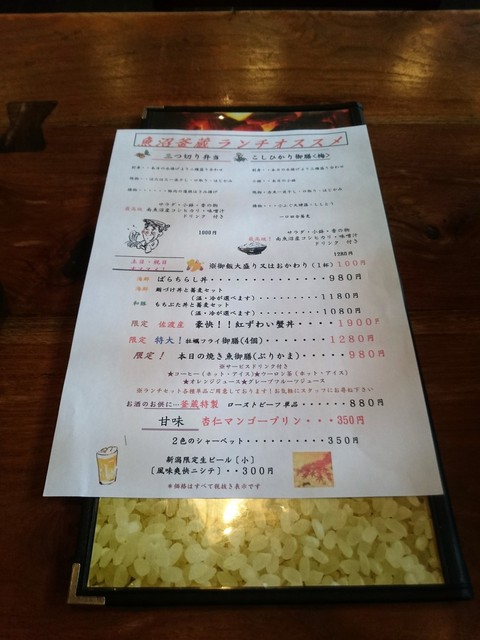 魚沼釜蔵 ランチオススメ
三つ切り弁当 こしひかり御膳<梅>
サラダ・小鉢・香の物
南魚沼産コシヒカリ・味噌汁
ドリンク 付き
1000円
一口田舎蕎麦
サラダ・小鉢・香の物
最高級!南魚沼産コシヒカリ・味噌汁
ドリンク 付き
1280円
土日・祝日
※御飯大盛り又はおかわり(1杯)100円
海鮮 ばらちらし丼・・・・・・・・・・・・980円
海鮮 鮪づけ丼と蕎麦セット
(温・冷が選べます)・・・・・・・・1180円
和豚 もちぶた丼と蕎麦セット
(温・冷が選べます)・・・・・・・・1080円
限定 佐渡産 豪快!!紅ずわい蟹丼・・・・1900円
限定 特大!牡蠣フライ御膳(4個)・・・・・1280円
限定! 本日の焼き魚御膳(ぶりかま)・・・・・980円
※サービスドリンク付き
★コーヒー(ホット・アイス)★ウーロン茶(ホット・アイス)
★オレンジジュース★グレープフルーツジュース
※ランチセット各種単品ご用意しております!お気軽にスタッフにお尋ね下さい
お酒のお供に…釜蔵特製 ローストビーフ単品・・・・・・880円
甘味 杏仁マンゴープリン・・・350円
2色のシャーベット・・・・・・・・・・350円
新潟限定生ビール[小]
[風味爽快ニシテ]・・300円
*価格はすべて税抜き表示です